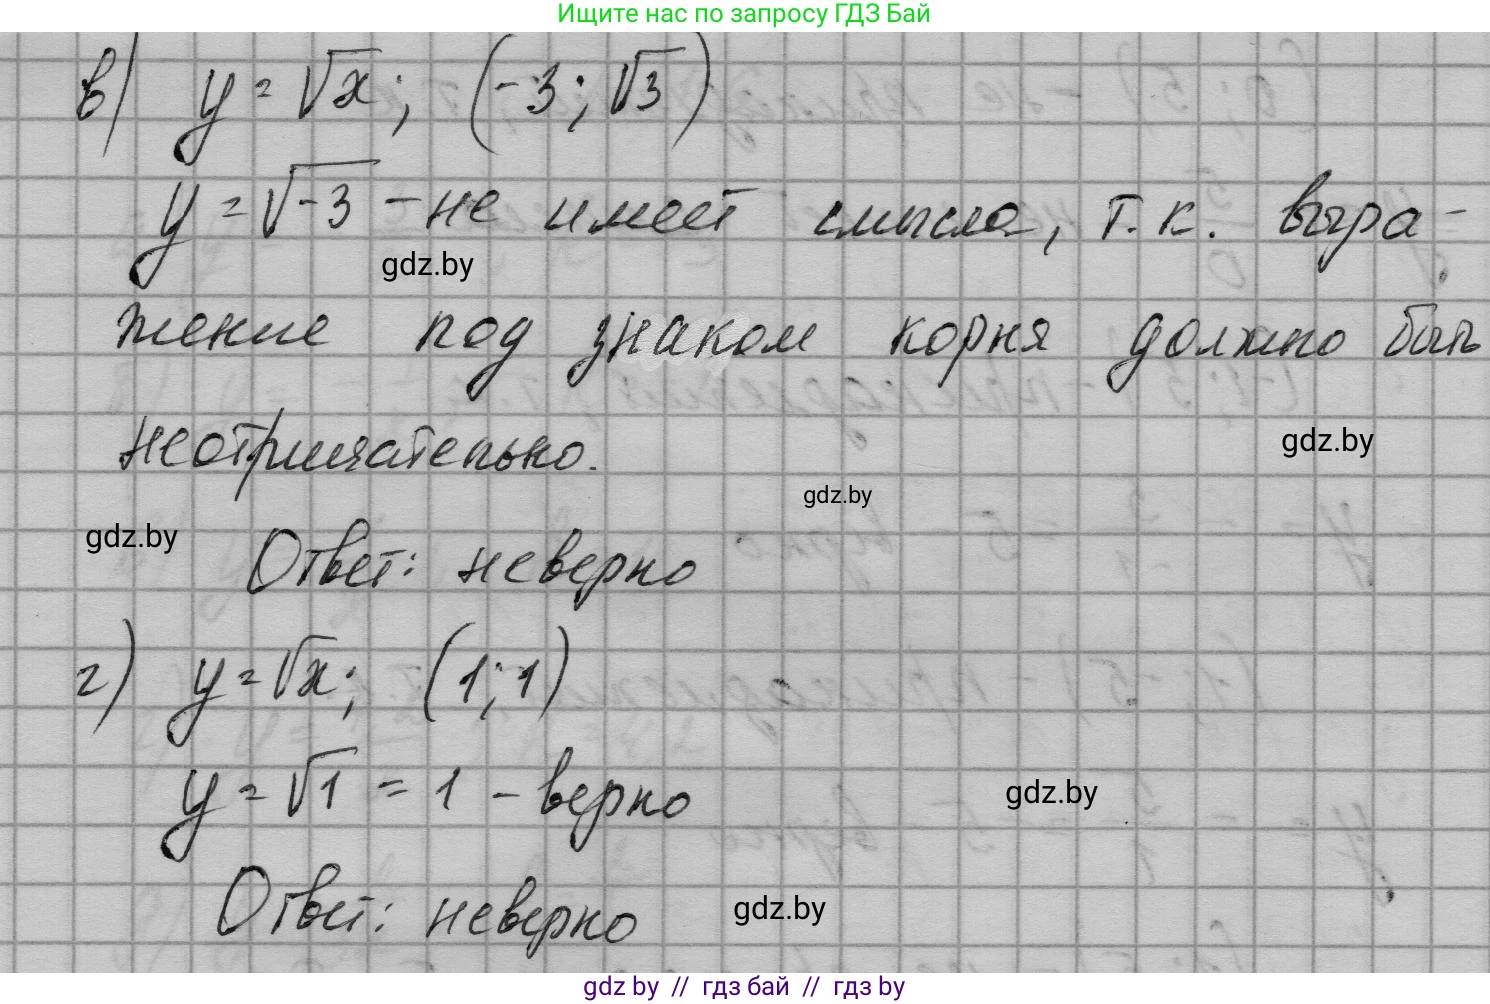 Ищите нас по запросу ГДЗ Бай
в) y = √x; (-3; √3)
y = √-3 - не имеет смысла, т.к. выра-
gdz.by
жение под знаком корня должно быть
неотрицательно.
gdz.by
gdz.by
gdz.by
Ответ: неверно
г) y = √x; (1; 1)
y = √1 = 1 - верно
gdz.by
Ответ: неверно
gdz.by
gdz.by // гдз бай // гдз by